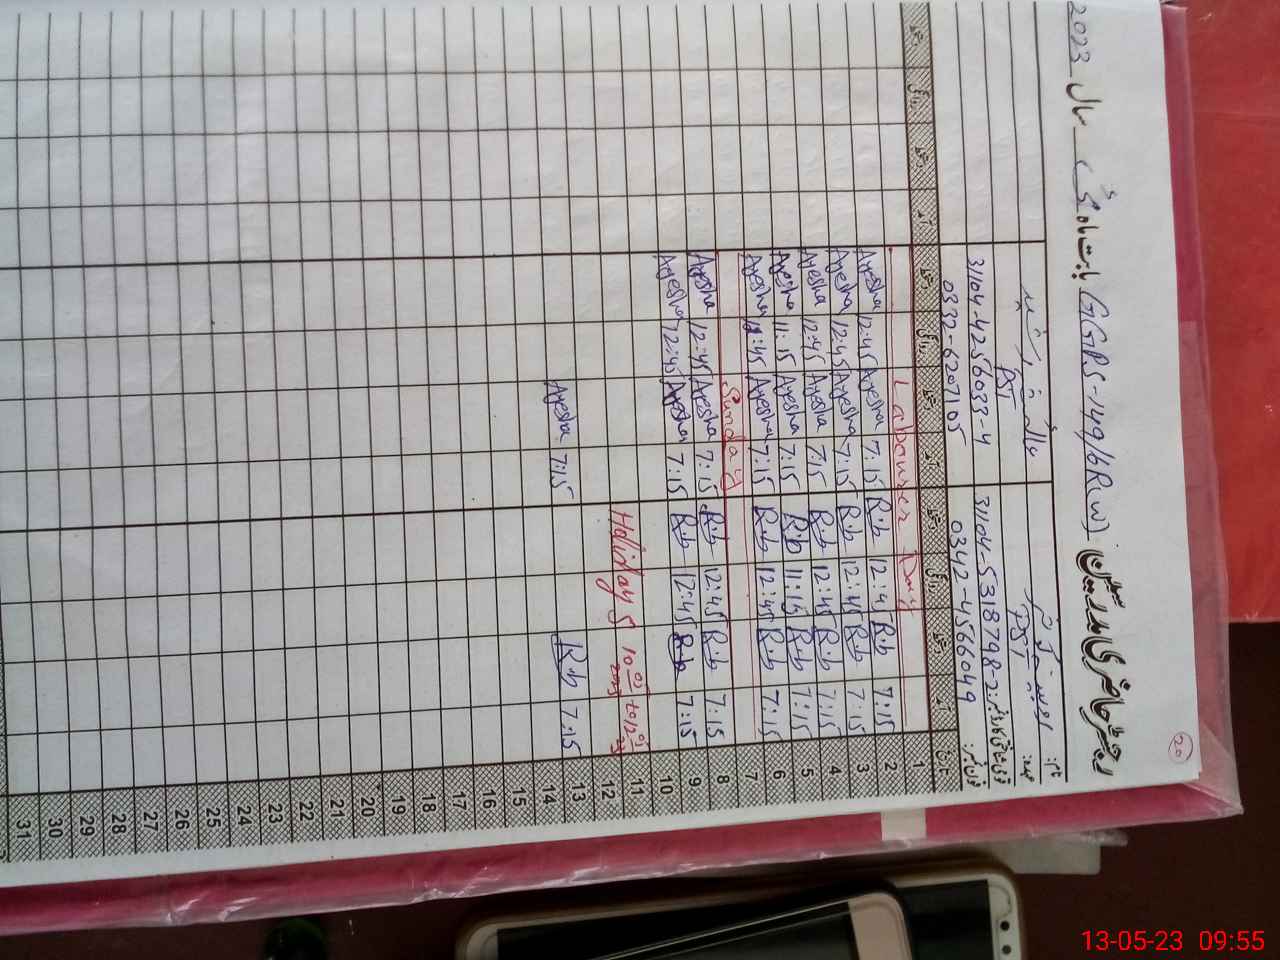 20
رجسٹر حاضری مدرسین سکول GGPS-149/6R(W) بابت ماہ مئی سال 2023
نام:
عہدہ: PST PST
قومی شناختی کارڈ نمبر: 31104-5318798-2 31104-4256033-4
فون نمبر: 0342-4566049 0332-6207105
تاریخ آمد دستخط روانگی دستخط آمد دستخط روانگی دستخط آمد دستخط روانگی دستخط
1 Labourer Day
2 7:15 R.b 12:45 R.b 7:15 Ayesha 12:45 Ayesha
3 7:15 R.b 12:45 R.b 7:15 Ayesha 12:45 Ayesha
4 7:15 R.b 12:45 R.b 7:15 Ayesha 12:45 Ayesha
5 7:15 R.b 11:15 R.b 7:15 Ayesha 11:15 Ayesha
6 7:15 R.b 12:45 R.b 7:15 Ayesha 12:45 Ayesha
7 Sunday
8 7:15 R.b 12:45 R.b 7:15 Ayesha 12:45 Ayesha
9 7:15 R.b 12:45 R.b 7:15 Ayesha 12:45 Ayesha
10
11 Holidays
12
13 7:15 R.b 7:15 Ayesha
14
15
16
17
18
19
20
21
22
23
24
25
26
27
28
29
30
31
13-05-23 09:55